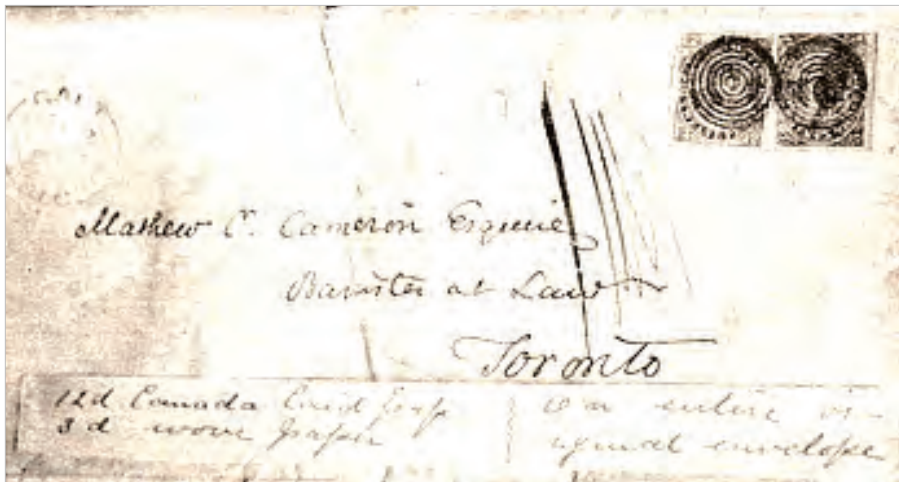 Mathew C. Cameron Esquire
Barrister at Law
Toronto
12d Canada laid pap
3d wove paper
On entire or-
iginal envelope